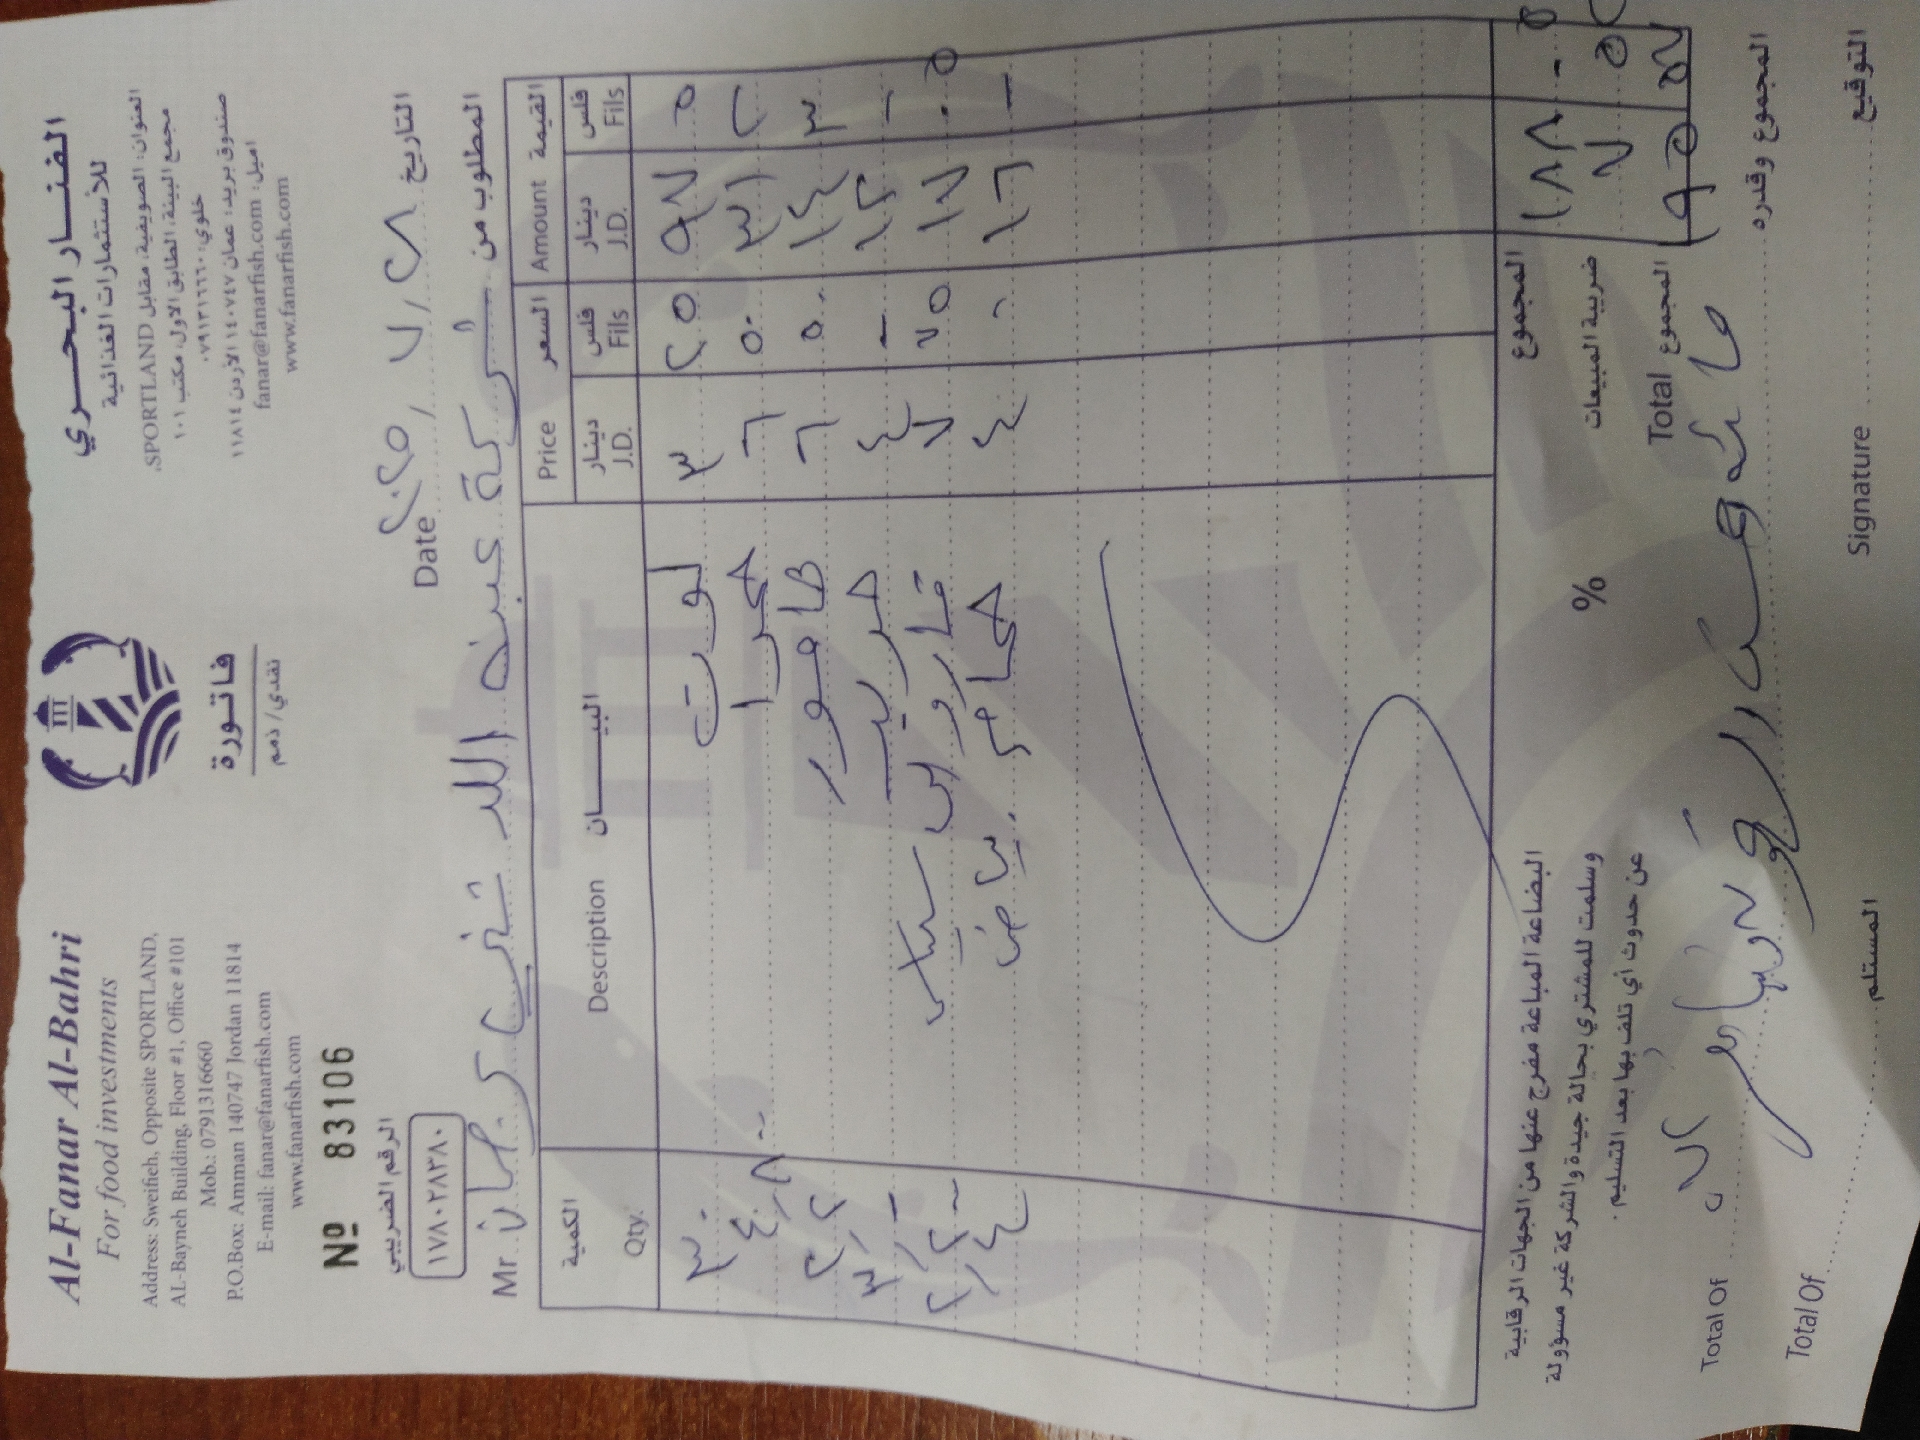 Al-Fanar Al-Bahri
For food investments
Address: Sweifieh, Opposite SPORTLAND,
AL-Bayneh Building, Floor #1, Office #101
Mob.: 0791316660
P.O.Box: Amman 140747 Jordan 11814
E-mail: fanar@fanarfish.com
www.fanarfish.com
الفنار البحري
للأستثمارات الغذائية
العنوان: الصويفية، مقابل SPORTLAND.
مجمع البينة، الطابق الاول، مكتب ١٠١
خلوي: ٠٧٩١٣١٦٦٦٠
صندوق بريد: عمان ١٤٠٧٤٧ الأردن ١١٨١٤
اميل: fanar@fanarfish.com
www.fanarfish.com
فاتورة
نقدي / ذمم
Nº 83106
الرقم الضريبي
١٧٨٠٢٨٣٨٠
Date ٢٠٢٥ / ٧ / ٢١ التاريخ
Mr. المطلوب من شركة عبد الله
الكمية البيان السعر القيمة
Qty. Description Price Amount
دينار فلس دينار فلس
J.D. Fils J.D. Fils
٣٠ ٣ ٢٥ ٩٧ ٥
٤,٨ ٦ ٥٠ ٣١ ٢
٢,٢ هامور ٦ ٥٠ ١٤ ٣
٣,٠ ٤ ١٢
٧ ٧٥ ١٧ ٠٥
٤ ٤ ١٦
البضاعة المباعة مفرج عنها من الجهات الرقابية
وسلمت للمشتري بحالة جيدة والشركة غير مسؤولة
عن حدوث أي تلف بها بعد التسليم.
المجموع ١٨٨ ٠٥
% ضريبة المبيعات ٧ ٥٢
Total المجموع ١٩٥ ٥٧
Total Of المجموع وقدره
Total Of
المستلم Signature التوقيع